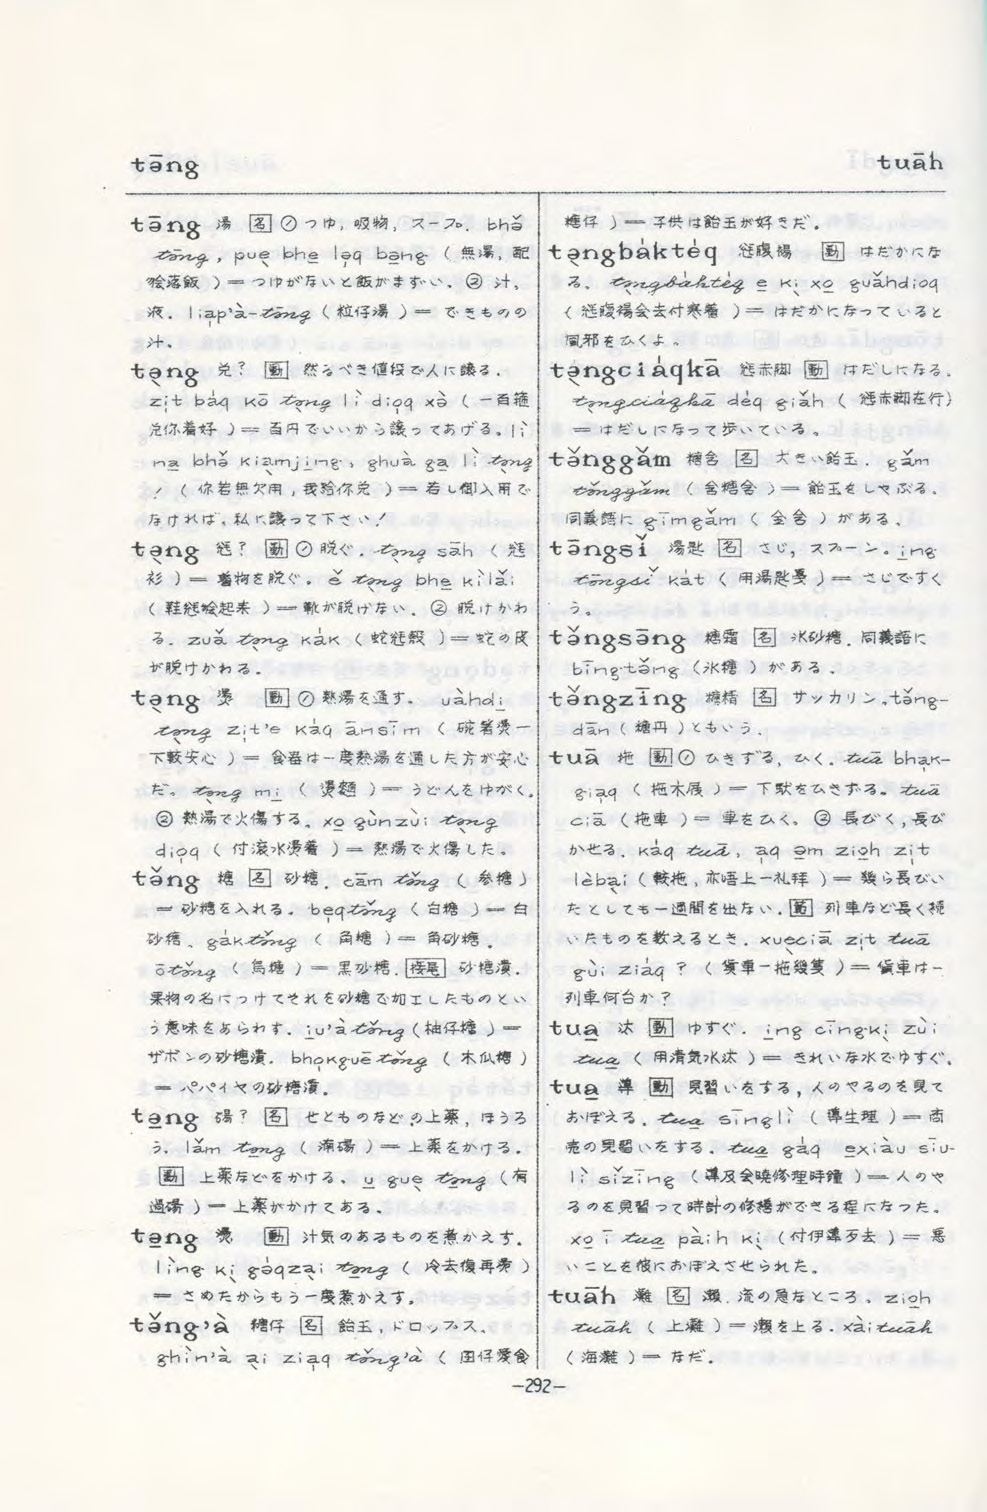 tāng
tuāh
tāng 湯 名 ㋑つゆ, 吸物, スープ. bhǒ
tāng, puẹ bhe lǝq bǝng (無湯, 配
喰落飯)＝つゆがないと飯がまずい。②汁,
液. liap'à-tāng (粒仔湯)＝できものの
汁。
tǝng 兌? 動 然るべき値段で人に譲る.
zit báq kō tǝng lì dioq xò (一百箍
兌你着好)＝百円でいいから譲ってあげる。lì
na bhǒ kiamjing, ghuà ga lì tǝng
! (你若無欠用, 我給你兌)＝若し御入用で
なければ, 私に譲って下さい!
tǝng 褪? 動 ㋑脱ぐ. tǝng sāh (褪
衫)＝着物を脱ぐ. ě tǝng bhe kìlǎi
(鞋褪喰起来)＝靴が脱げない. ②脱けかわ
る. zuǎ tǝng kák (蛇褪殻)＝蛇の皮
が脱けかわる.
tǝng 燙 動 ㋑熱湯を通す. uàhdi
tǝng zit'e káq ānsīm (碗箸燙一
下較安心)＝食器は一度熱湯を通した方が安心
だ. tǝng mi (燙麵)＝うどんをゆがく.
②熱湯で火傷する. xo gùnzùi tǝng
dioq (付滾水燙着)＝熱湯で火傷した.
tǒng 糖 名 砂糖. cām tǒng (参糖)
＝砂糖を入れる. beqtǒng (白糖)＝白
砂糖. gáktǒng (角糖)＝角砂糖.
ōtǒng (烏糖)＝黒砂糖. 接尾 砂糖漬.
果物の名につけてそれを砂糖で加工したものとい
う意味をあらわす. iu'à tǒng (柚仔糖)＝
ザボンの砂糖漬. bhokguē tǒng (木瓜糖)
＝パパイヤの砂糖漬.
tǝng 碭? 名 せとものなどの上薬, ほうろ
う. lǎm tǝng (淋碭)＝上薬をかける.
動 上薬などをかける. u guẹ tǝng (有
過碭)＝上薬がかけてある.
tǝng 燙 動 汁気のあるものを煮かえす.
lìng kị góqzại tǝng (冷去復再燙)
＝さめたからもう一度煮かえす.
tǒng'à 糖仔 名 飴玉, ドロップス.
ghìn'à ại ziaq tǒng'à (囝仔愛食
糖仔)＝子供は飴玉が好きだ.
tǝngbáktéq 褪腹裼 動 はだかにな
る. tǝngbáktéq e kị xo guǎhdioq
(褪腹裼会去付寒着)＝はだかになっていると
風邪をひくよ.
tǝngciáqkā 褪赤脚 動 はだしになる.
tǝngciáqkā déq giǎh (褪赤脚在行)
＝はだしになって歩いている.
tǒnggǎm 糖含 名 大きい飴玉. gǎm
tǒnggǎm (含糖含)＝飴玉をしゃぶる.
同義語に gīmgǎm (金含) がある.
tāngsǐ 湯匙 名 さじ, スプーン. ing
tāngsǐ kát (用湯匙戛)＝さじですく
う.
tǒngsāng 糖霜 名 氷砂糖. 同義語に
bīngtǒng (氷糖) がある.
tǒngzīng 糖精 名 サッカリン. tǒng-
dān (糖丹) ともいう.
tuā 拖 動 ㋑ひきずる, ひく. tuā bhak-
giaq (拖木屐)＝下駄をひきずる. tuā
ciā (拖車)＝車をひく. ②長びく, 長び
かせる. káq tuā, aq ǝm zioh zit
lèbại (較拖, 亦唔上一礼拜)＝幾ら長びい
たとしても一週間を出ない. 数 列車など長く続
いたものを数えるとき. xuẹciā zit tuā
gùi ziáq? (貨車一拖幾隻)＝貨車は一
列車何台か?
tua 汰 動 ゆすぐ. ing cīngkị zùi
tua (用清気水汰)＝きれいな水でゆすぐ.
tua 導 動 見習いをする, 人のやるのを見て
おぼえる. tua sīnglì (導生理)＝商
売の見習いをする. tua gáq exiàu siu-
lì sizīng (導及会曉修理時鐘)＝人のや
るのを見習って時計の修繕ができる程になった.
xo ī tua pàih kị (付伊導歹去)＝悪
いことを彼におぼえさせられた.
tuāh 灘 名 瀬. 流の急なところ. zioh
tuāh (上灘)＝瀬を上る. xàituāh
(海灘)＝なだ.
—292—